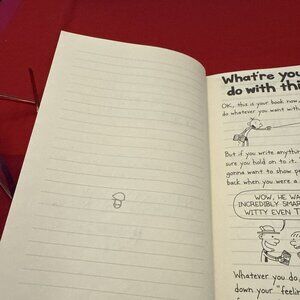 What're you
do with thi
OK, this is your book now
do whatever you want with
But if you write anything
sure you hold on to it.
gonna want to show pe
back when you were a
WOW, HE WA
INCREDIBLY SMAR
WITTY EVEN T
Whatever you do,
down your "feelin